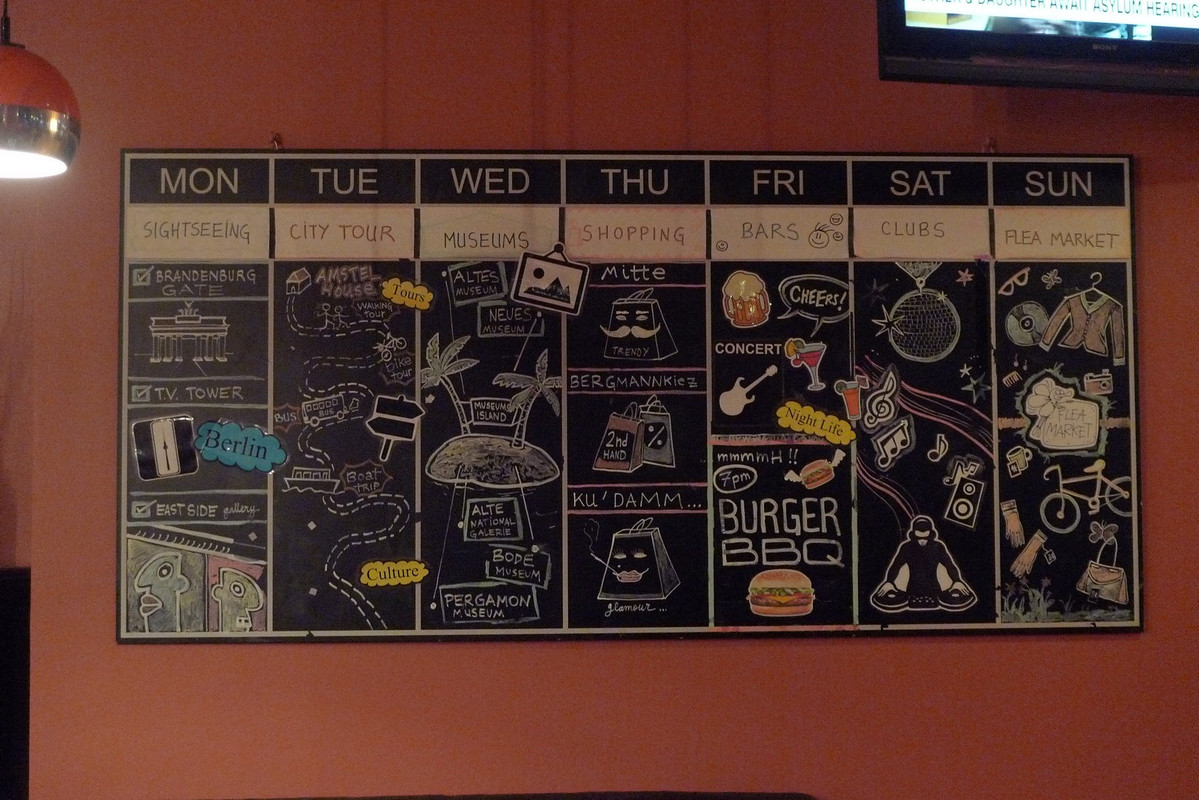 & DAUGHTER AWAIT ASYLUM HEARING
SONY
MON
TUE
WED
THU
FRI
SAT
SUN
SIGHTSEEING
CITY TOUR
MUSEUMS
SHOPPING
BARS
CLUBS
FLEA MARKET
BRANDENBURG
GATE
T.V. TOWER
Berlin
EAST SIDE gallery
AMSTEL
HOUSE
Tours
WALKING
TOUR
bike
tour
BUS
BUS
Boat
TRIP
Culture
ALTES
MUSEUM
NEUES
MUSEUM
MUSEUMS
ISLAND
ALTE
NATIONAL
GALERIE
BODE
MUSEUM
PERGAMON
MUSEUM
Mitte
TRENDY
BERGMANNKiEZ
2nd
HAND
%
KU'DAMM...
glamour...
CHEERS!
CONCERT
Night Life
mmmmH !!
7pm
BURGER
BBQ
FLEA
MARKET